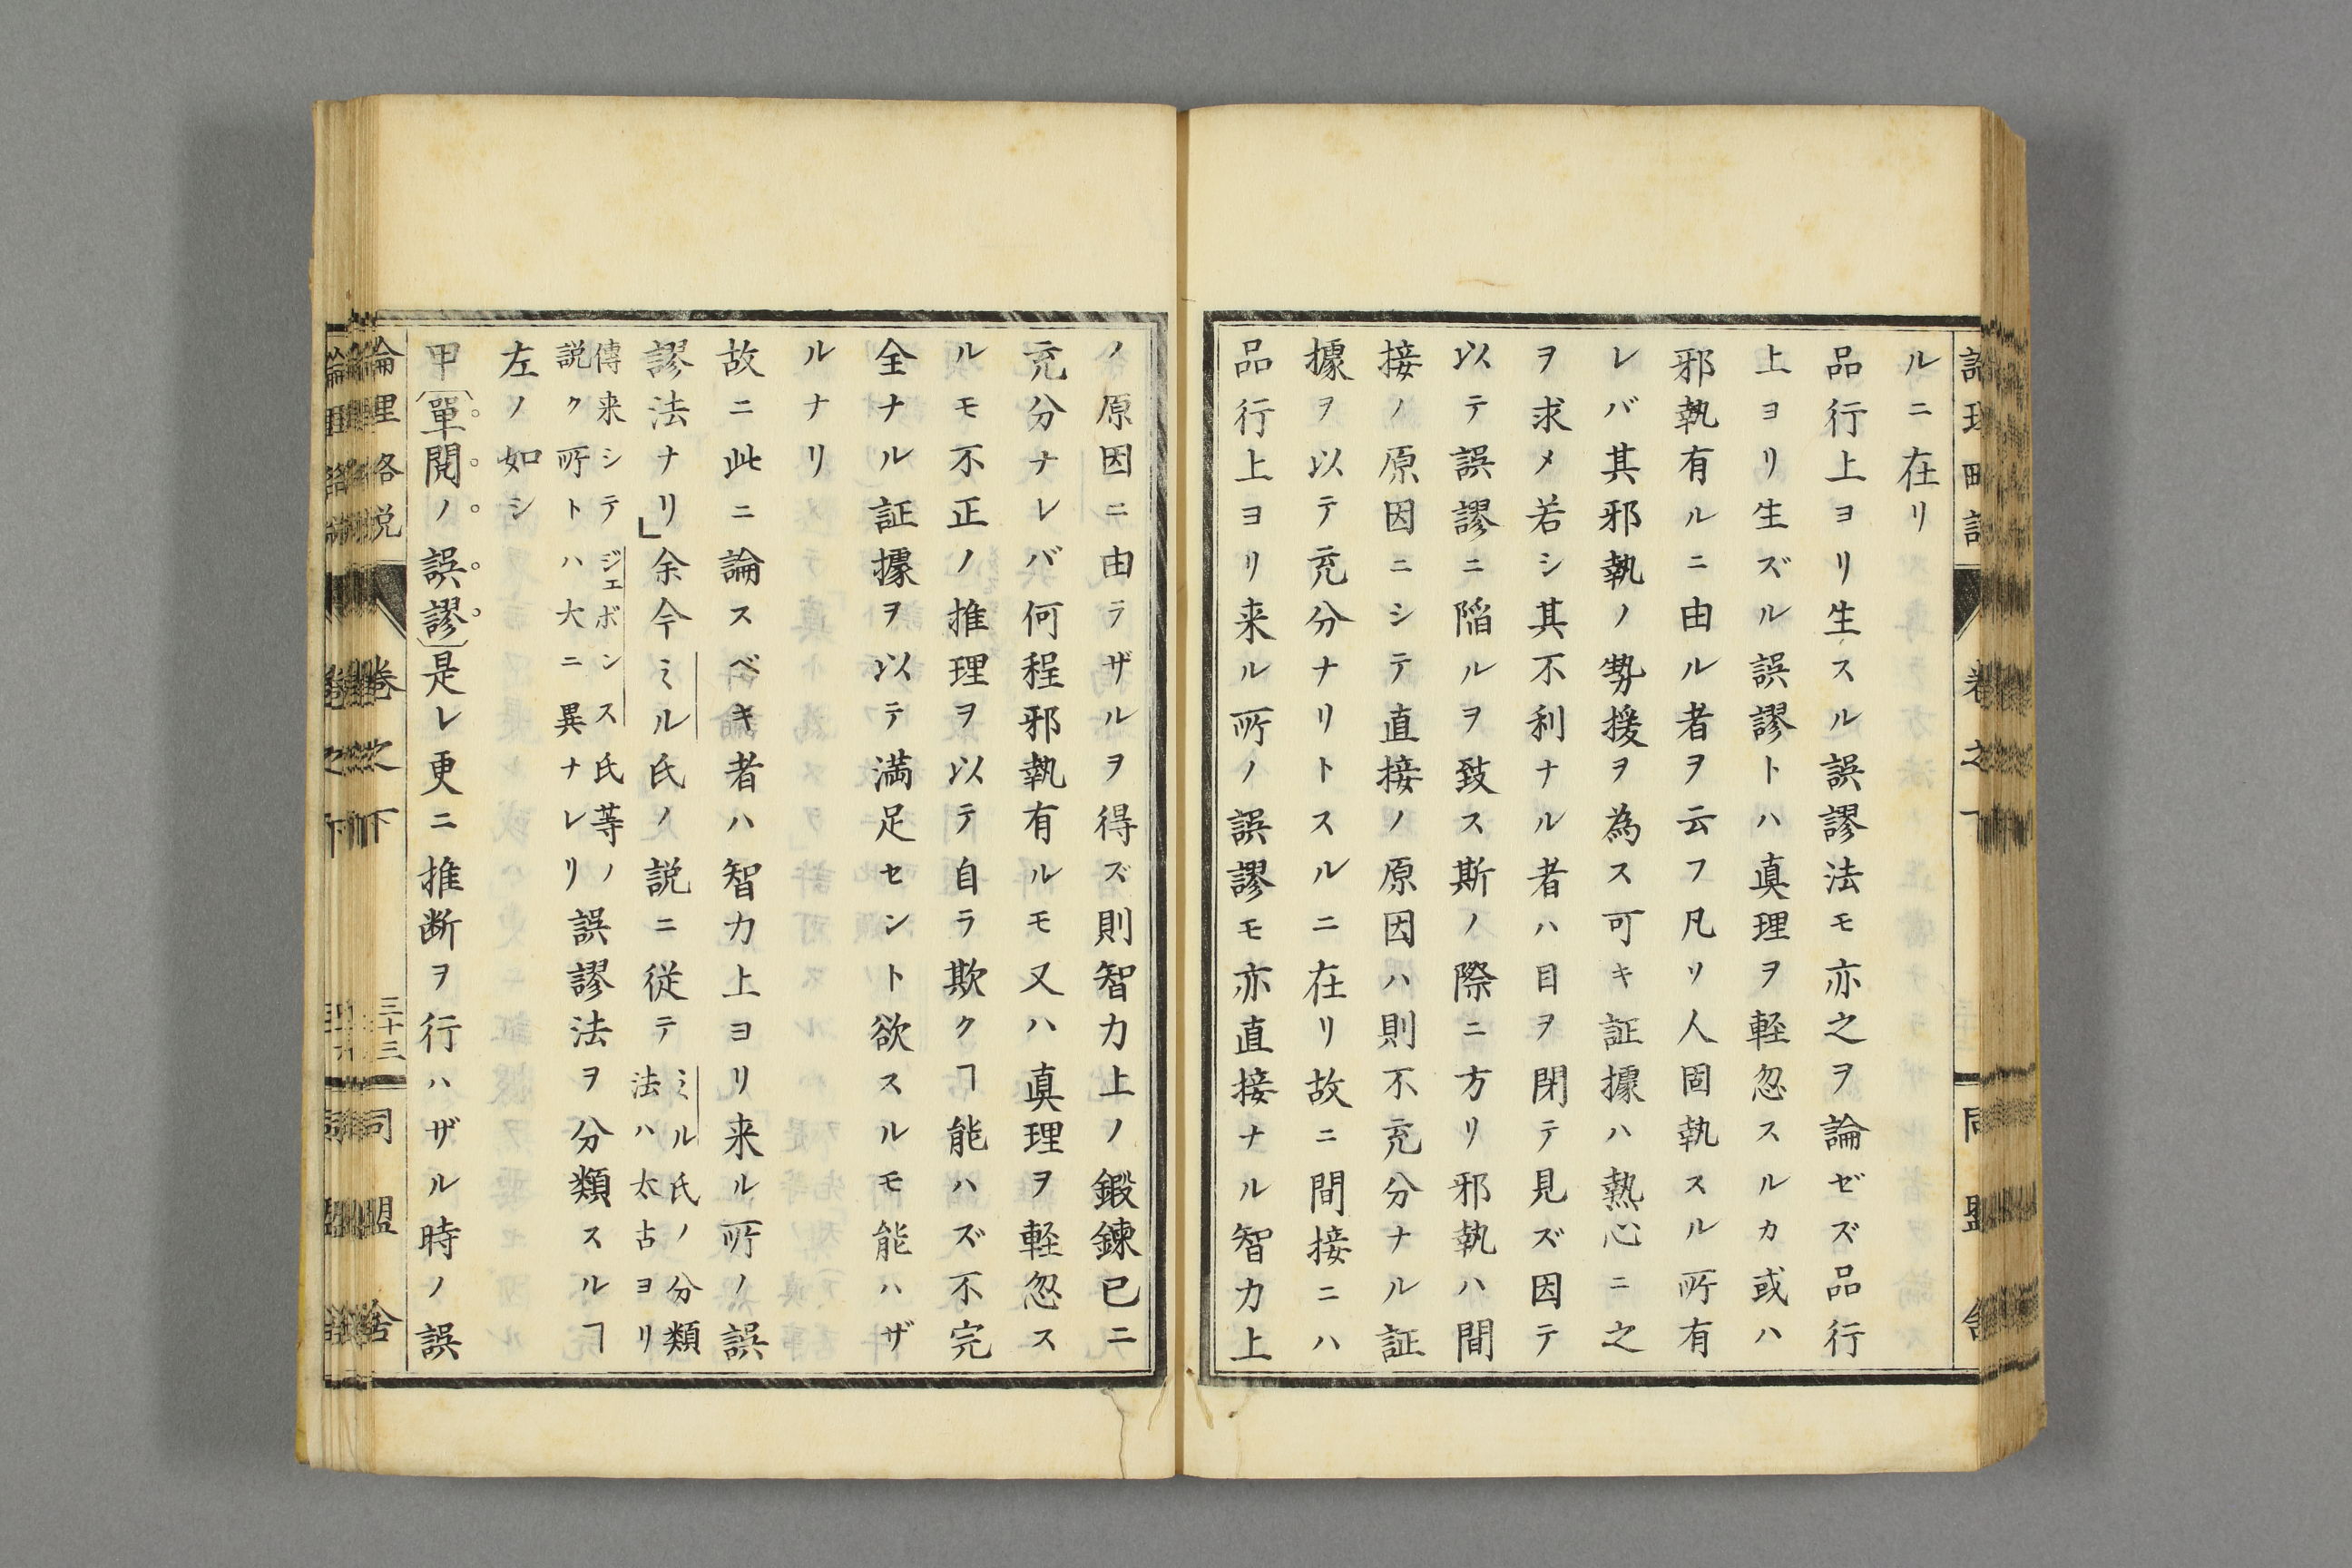 ルニ在リ
品行上ヨリ生スル誤謬法モ亦之ヲ論ゼズ品行
上ヨリ生ズル誤謬トハ真理ヲ軽忽スルカ或ハ
邪執有ルニ由ル者ヲ云フ凡リ人固執スル所有
レバ其邪執ノ勢援ヲ為ス可キ証據ハ熱心ニ之
ヲ求メ若シ其不利ナル者ハ目ヲ閉テ見ズ因テ
以テ誤謬ニ陥ルヲ致ス斯ノ際ニ方リ邪執ハ間
接ノ原因ニシテ直接ノ原因ハ則不充分ナル証
據ヲ以テ充分ナリトスルニ在リ故ニ間接ニハ
品行上ヨリ来ル所ノ誤謬モ亦直接ナル智力上
ノ原因ニ由ラザルヲ得ズ則智力上ノ鍛錬已ニ
充分ナレバ何程邪執有ルモ又ハ真理ヲ軽忽ス
ルモ不正ノ推理ヲ以テ自ラ欺クヿ能ハズ不完
全ナル証據ヲ以テ満足セント欲スルモ能ハザ
ルナリ
故ニ此ニ論スベキ者ハ智力上ヨリ来ル所ノ誤
謬法ナリ」余今ミル氏ノ説ニ従テ
ミル氏ノ分類
法ハ太古ヨリ
傳来シテジェボンス氏等ノ
説ク所トハ大ニ異ナレリ
誤謬法ヲ分類スルヿ
左ノ如シ
甲〔單閲ノ誤謬〕是レ更ニ推断ヲ行ハザル時ノ誤
卷之下
三十三
同盟舍